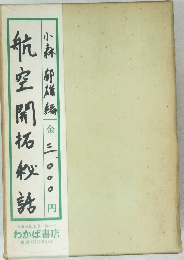 小森郁雄編
金三、〇〇〇円
航空開拓秘話
わかば書店